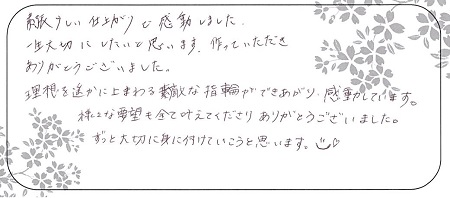 素敵らしい仕上がりで感動しました。
一生大切にしたいと思います。作っていただき
ありがとうございました。
理想を遥かに上まわる素敵な指輪ができあがり、感動しています。
様々な要望も全て叶えてくださりありがとうございました。
ずっと大切に身に付けていこうと思います。